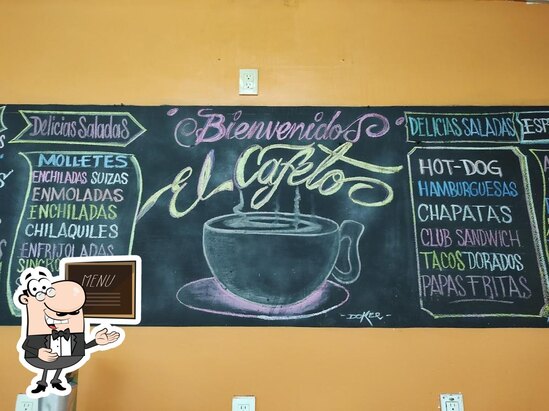 Delicias Saladas
MOLLETES
ENCHILADAS SUIZAS
ENMOLADAS
ENCHILADAS
CHILAQUILES
ENFRIJOLADAS
MENU
Bienvenidos
El Cafeto
-DOKER-
DELICIAS SALADAS
HOT-DOG
HAMBURGUESAS
CHAPATAS
CLUB SANDWICH
TACOS DORADOS
PAPAS FRITAS